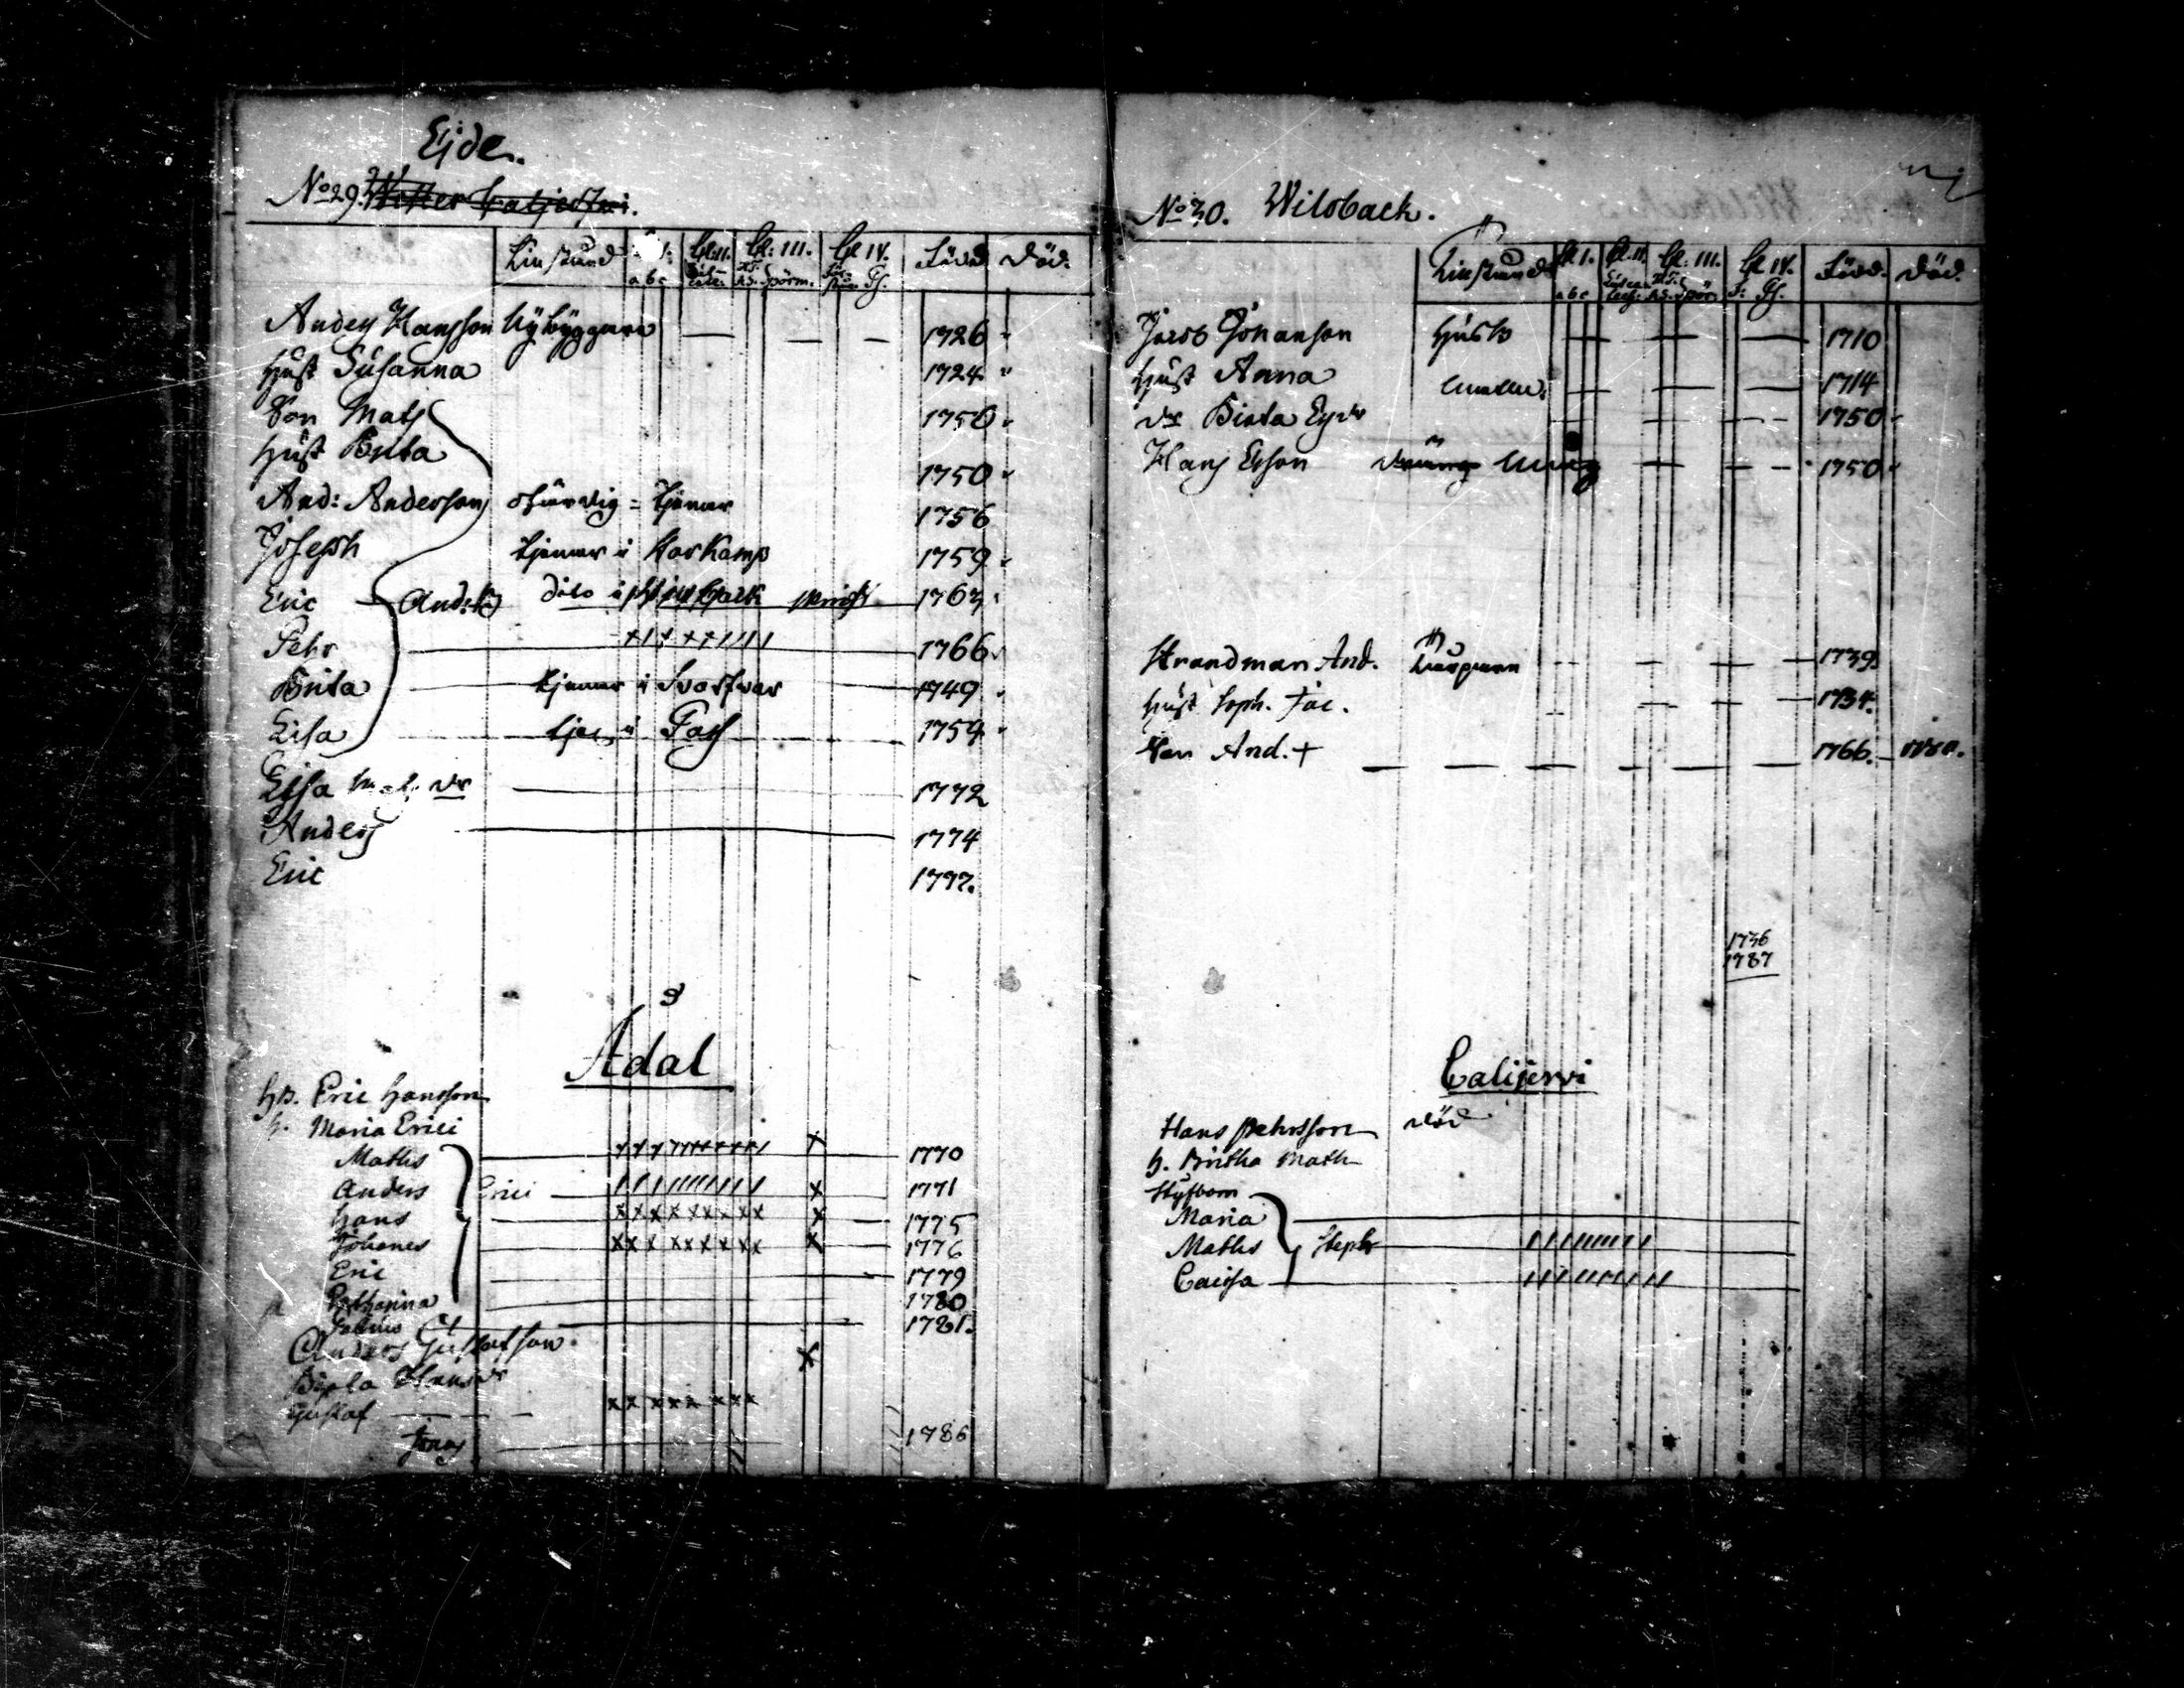 Ejde.
No 29. Wester Caljerfwi.
Lifstånd Cl: II. Cl: III. Cl IV. Född Död.
a b c Spörm.
Anders Hansson Nÿbÿggare 1726
Hust Susanna 1724
Son Mats 1750
Hust Brita 1750
And: Andersson ofärdig = tjenar 1756
Joseph tjenar i Korkamp 1759
Eric And: dito i 1763
Pehr 1766
Brita tjenar i Svartvar 1749
Lisa tjen i 1759
Lisa Mats dr 1772
Anders 1774
Eric 1777.
Ådal
hb. Eric Hansson
h. Maria Erici
Maths 1770
Anders Erici 1771
Hans 1775
Johanes 1776
Eric 1779
Catharina 1780
1781.
Anders Gustafsson.
Hans dr
Gustaf
Jonas 1786
No 30. Wiloback.
Lifstånd Cl I. Cl. II. Cl: III. Cl IV. Född. Död.
a b c
Jacob Johanson Husb 1710
Hust Anna 1714
dr Birta 1750
Hans Erson dräng 1750
Strandman And. 1739
Hust Soph. Jac. 1734.
Son And. + 1766.
1736
1787
Calijervi
Hans Pehrsson död
h. Britha Math
Styfbarn
Maria
Maths Steph
Caisa